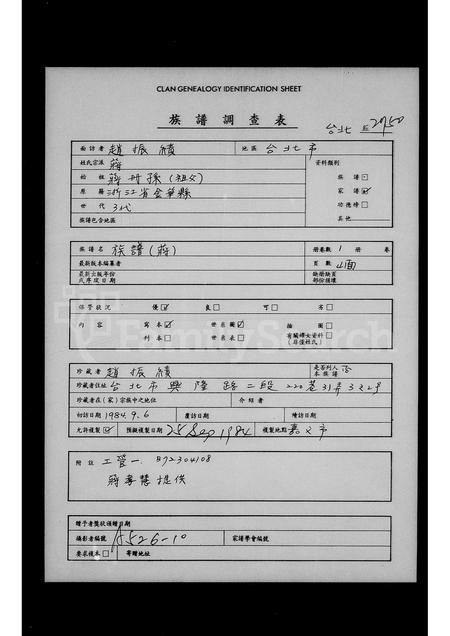 CLAN GENEALOGY IDENTIFICATION SHEET
族譜調查表
台北 2750
面訪者 趙振績 地區 台北市
姓氏宗派 蔣 資料類別
始祖 蔣丹孫(祖父) 族譜
原籍 浙江省金華縣 家譜 ☑
世代 3代 功德榜
族譜包含地區 其他
族譜名 族譜(蔣) 冊卷數 1 冊 卷
最新版本編纂者 頁數 面
最新出版年份 缺冊缺頁
或序跋日期 部份損壞
保管狀況 優 ☑ 良 □ 可 □ 劣 □
內容 寫本 ☑ 世系圖 ☑ 插圖 □
刊本 □ 世系表 □ 有關婦女資料 □
(非僅姓氏)
FamilySearch
珍藏者 趙振績 是否列入本族譜 否
珍藏者住址 台北市興隆路二段220巷31弄3之2号
珍藏者在(家)宗族中之地位 介紹者
初訪日期 1984.9.6 覆訪日期 續訪日期
允許複製 ☑ 預擬複製日期 25 Sep 1984 複製地點 嘉义市
附註 工管一 B72304108
蔣孝慧提供
贈予者獎狀頒贈日期
攝影者編號 A526-10 家譜學會編號
要求複本 □ 寄贈地址